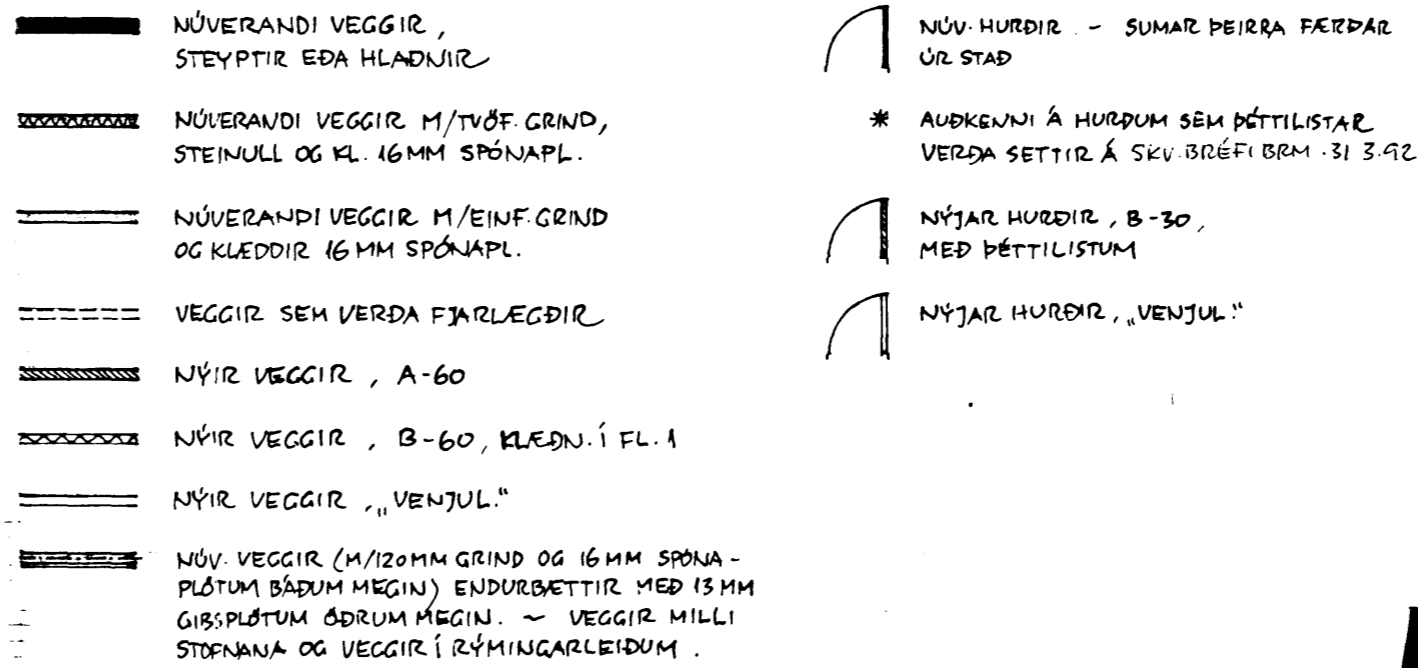 NÚVERANDI VEGGIR,
STEYPTIR EÐA HLAÐNIR
NÚVERANDI VEGGIR M/TVÖF. GRIND,
STEINULL OG KL. 16MM SPÓNAPL.
NÚVERANDI VEGGIR M/EINF. GRIND
OG KLÆDDIR 16 MM SPÓNAPL.
VEGGIR SEM VERÐA FJARLÆGÐIR
NÝIR VEGGIR, A-60
NÝIR VEGGIR, B-60, KLÆÐN. Í FL. 1
NÝIR VEGGIR, „VENJUL.“
NÚV. VEGGIR (M/120MM GRIND OG 16 MM SPÓNA-
PLÖTUM BÁÐUM MEGIN) ENDURBÆTTIR MEÐ 13 MM
GIBSPLÖTUM ÖÐRUM MEGIN. ~ VEGGIR MILLI
STOFNANA OG VEGGIR Í RÝMINGARLEIÐUM.
NÚV. HURÐIR - SUMAR ÞEIRRA FÆRÐAR
ÚR STAÐ
* AUÐKENNI Á HURÐUM SEM ÞÉTTILISTAR
VERÐA SETTIR Á SKV. BRÉFI BRM. 31 3.92
NÝJAR HURÐIR, B-30,
MEÐ ÞÉTTILISTUM
NÝJAR HURÐIR, „VENJUL.“